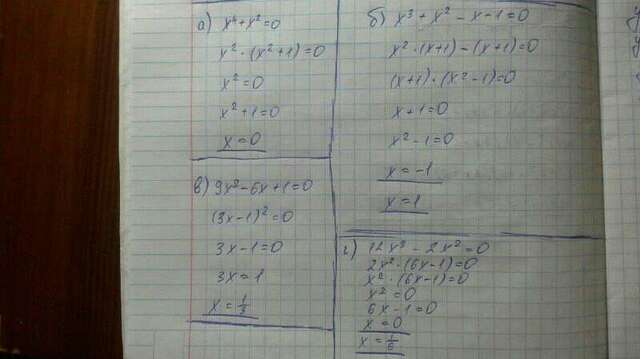 а) x⁴+x²=0
x²·(x²+1)=0
x²=0
x²+1=0
x=0
б) x³+x²-x-1=0
x²·(x+1)-(x+1)=0
(x+1)·(x²-1)=0
x+1=0
x²-1=0
x=-1
x=1
в) 9x²-6x+1=0
(3x-1)²=0
3x-1=0
3x=1
x=1/3
г) 12x³-2x²=0
2x²·(6x-1)=0
x²·(6x-1)=0
x²=0
6x-1=0
x=0
x=1/6